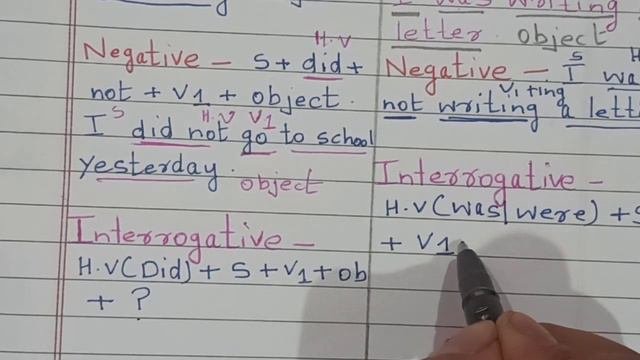 was writing
letter. object
H.V
Negative - S + did +
not + V1 + object.
S H.V V1
I did not go to school
yesterday.
object
Interrogative -
H.V(Did) + S + V1 + ob
+ ?
S H
Negative - I wa
V1 + ing
not writing a lett
Interrogative -
H.V(was/were) + S
+ V1